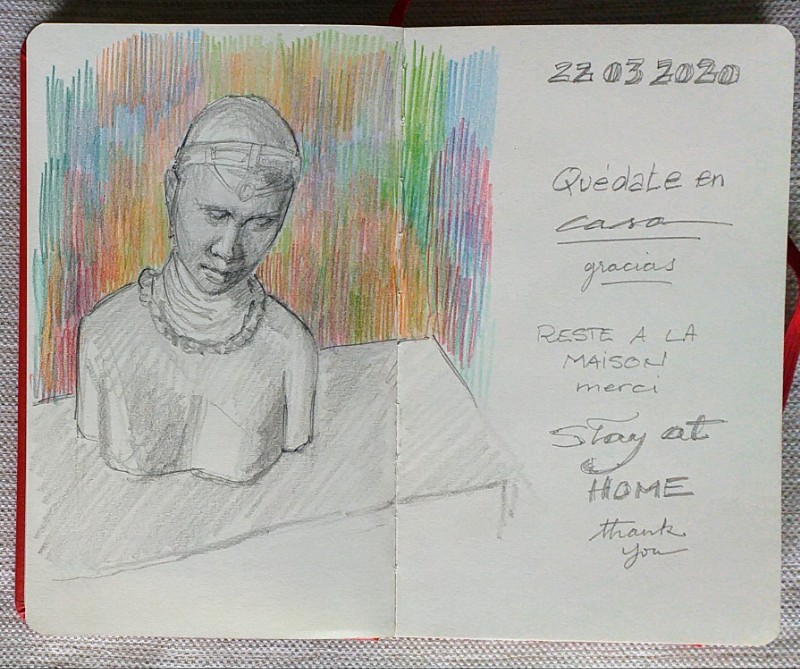 22 03 2020
Quédate en
casa
gracias
RESTE A LA
MAISON
merci
Stay at
HOME
thank
you